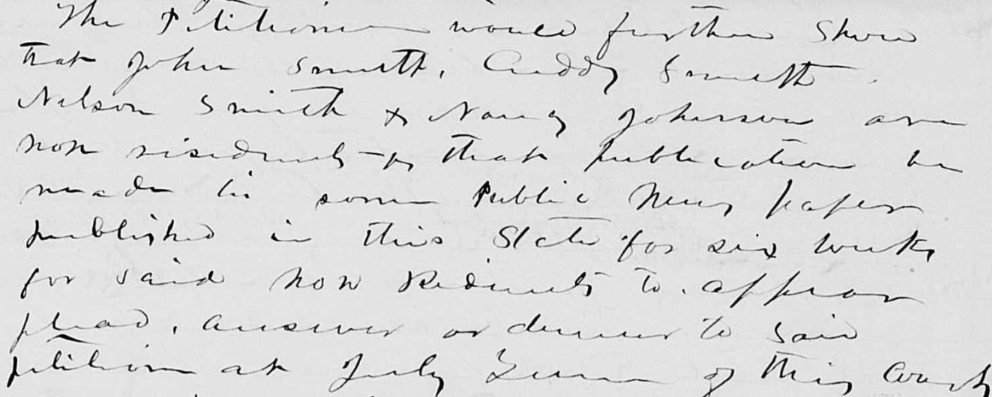 The Petitioner would further Show
that John Smith, Cuddy Smith
Nelson Smith & Nancy Johnson are
non residents & that publication be
made in some Public News paper
published in this State for six weeks
for said non Residents to appear
plead, answer or demur to said
petition at July Term of this Court